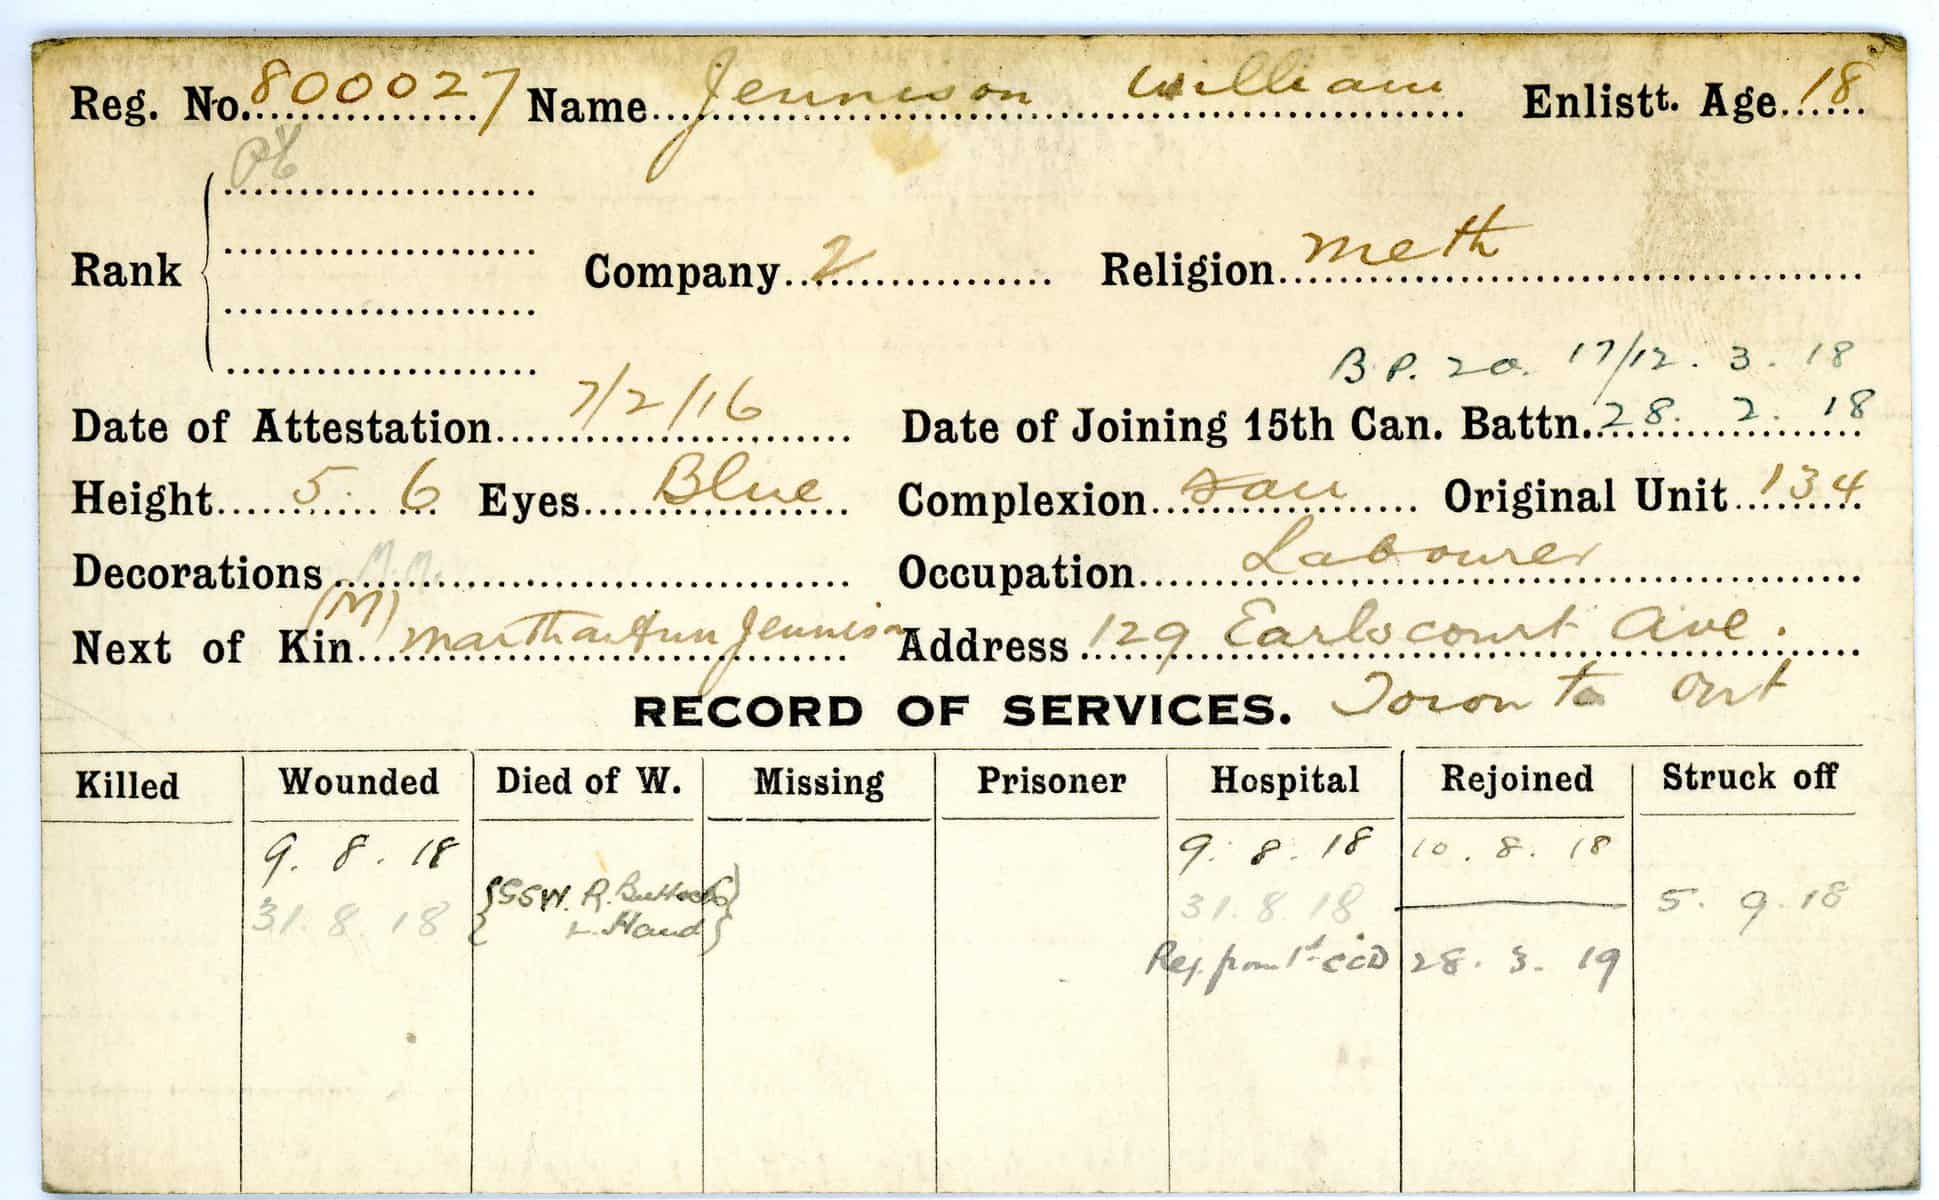 Reg. No. 800027 Name Jennison William Enlistt. Age 18
Pte
Rank Company 2 Religion Meth
B.P. 20. 17/12. 3. 18
Date of Attestation 7/2/16 Date of Joining 15th Can. Battn. 28. 2. 18
Height 5. 6 Eyes Blue Complexion Fair Original Unit 134
Decorations M.M. Occupation Labourer
(M)
Next of Kin Martha Ann Jennison Address 129 Earlscourt Ave.
RECORD OF SERVICES. Toronto Ont
Killed Wounded Died of W. Missing Prisoner Hospital Rejoined Struck off
9. 8. 18 9. 8. 18 10. 8. 18
31. 8. 18 {GSW. R. Buttocks 31. 8. 18 5. 9. 18
L. Hand}
Rej. from 1st CCD 28. 3. 19